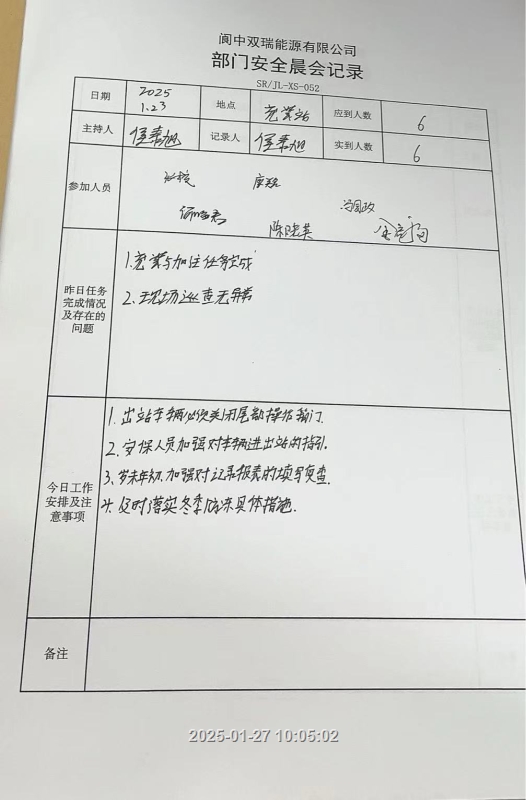 阆中双瑞能源有限公司
部门安全晨会记录
SR/JL-XS-052
日期 2025 1.23 地点 充装站 应到人数 6
主持人 记录人 实到人数 6
参加人员
陈晓英
昨日任务完成情况及存在的问题
1.充装与加注任务完成
2.现场巡查无异常
今日工作安排及注意事项
1.出站车辆必须关闭尾部操作箱门.
2.安保人员加强对车辆进出站的指引.
3.岁末年初,加强对记录报表的填写复查.
4.及时落实冬季防冻具体措施.
备注
2025-01-27 10:05:02